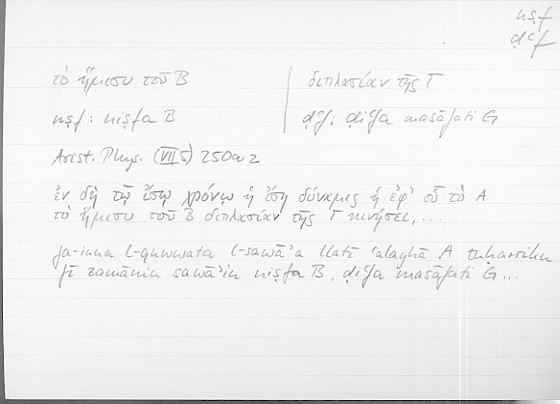 nṣf
ḍʿf
τὸ ἥμισυ τοῦ Β
διπλασίαν τῆς Γ
nṣf: niṣfa B
ḍʿf: ḍiʿfa masāfati G
Arist. Phys. (VII 5) 250a2
ἐν δὴ τῷ ἴσῳ χρόνῳ ἡ ἴση δύναμις ἡ ἐφ’ οὗ τὸ Α
τὸ ἥμισυ τοῦ Β διπλασίαν τῆς Γ κινήσει, ...
fa-inna l-quwwata l-sawāʾa llatī ʿalayhā A tuḥarriku
fī zamānin sawāʾin niṣfa B, ḍiʿfa masāfati G ...